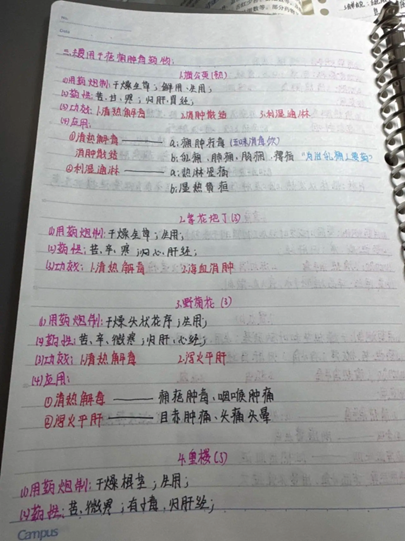 二、缓用于在痈肿毒药物:
1.蒲公英(药)
(1)用药炮制:干燥全草;鲜用、生用;
(2)药性:苦、甘、寒;归肝、胃经;
(3)功效:1.清热解毒 2.消肿散结 3.利湿通淋
(4)应用:
①清热解毒 —— a:痈肿疔毒(五味消毒饮)
消肿散结 b:乳痈、肺痈、肠痈、瘰疬 "为治乳痈之要药"
②利湿通淋 —— a:热淋涩痛
b:湿热黄疸
2.紫花地丁(3)
(1)用药炮制:干燥全草;生用;
(2)药性:苦、辛、寒;归心、肝经;
(3)功效:1.清热解毒 2.凉血消肿
3.野菊花(3)
(1)用药炮制:干燥头状花序;生用;
(2)药性:苦、辛、微寒;归肝、心经;
(3)功效:1.清热解毒 2.泻火平肝
(4)应用:
①清热解毒 —— 痈疮肿毒、咽喉肿痛
②泻火平肝 —— 目赤肿痛、头痛头晕
4.重楼(3)
(1)用药炮制:干燥根茎;生用;
(2)药性:苦、微寒;有小毒,归肝经;
Campus